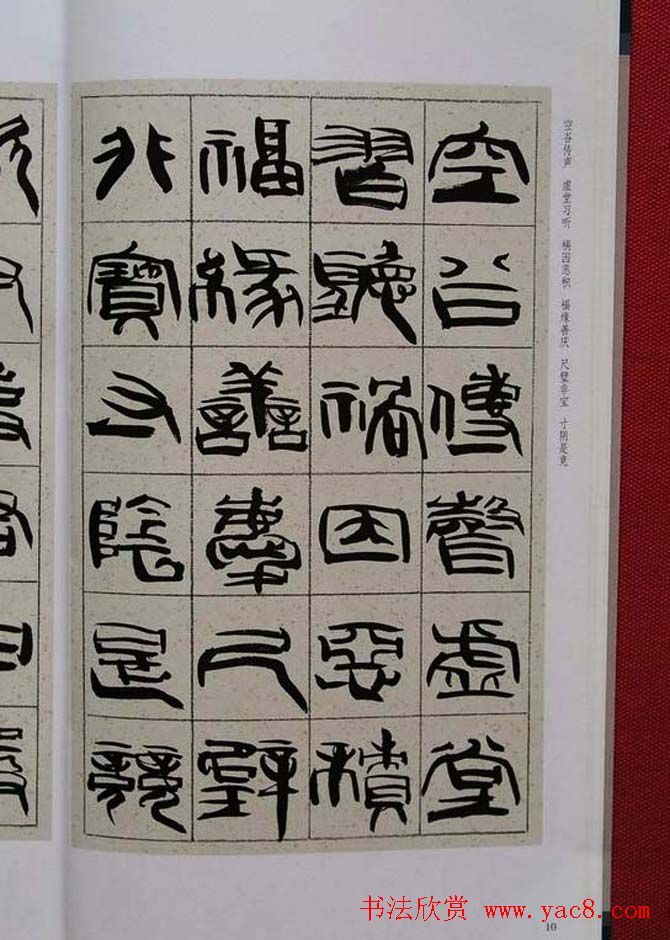 空谷传声 虚堂习听 祸因恶积 福缘善庆 尺璧非宝 寸阴是竞
空谷傳聲虛堂
習聽禍因惡積
福緣善慶尺璧
非寶寸陰是競
10
书法欣赏 www.yac8.com